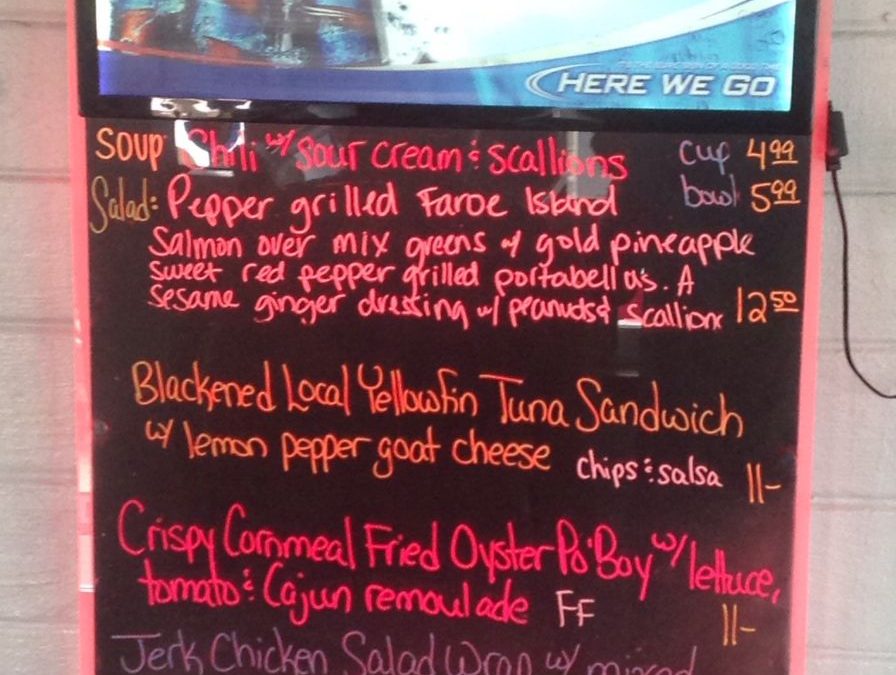 HERE WE GO
Soup Chili w/ Sour Cream & Scallions cup 4.99
Salad: Pepper grilled Faroe Island bowl 5.99
Salmon over mix greens w/ gold pineapple
sweet red pepper grilled portabellas. A
Sesame ginger dressing w/ peanuts & scallions 12.50
Blackened Local Yellowfin Tuna Sandwich
w/ lemon pepper goat cheese chips & salsa 11-
Crispy Cornmeal Fried Oyster Po·Boy w/ lettuce,
tomato & Cajun remoulade FF 11-
Jerk Chicken Salad Wrap w/ mixed